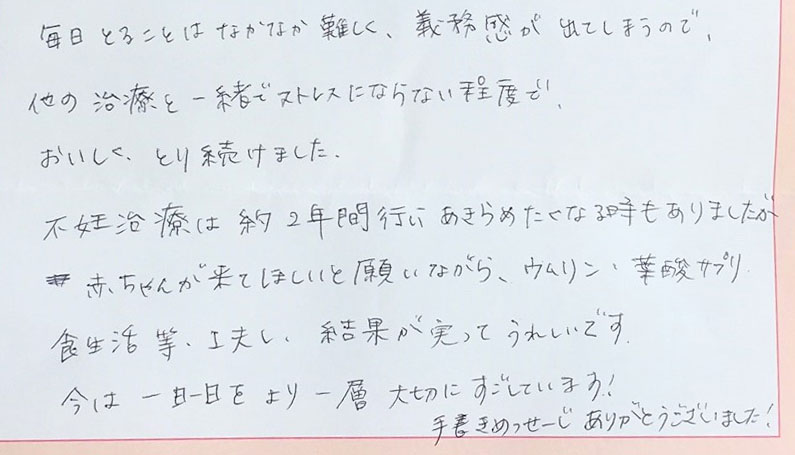 毎日とることはなかなか難しく、義務感が出てしまうので、
他の治療と一緒でストレスにならない程度で、
おいしく、とり続けました。
不妊治療は約2年間行い あきらめたくなる時もありましたが
赤ちゃんが来てほしいと願いながら、ウムリン・葉酸サプリ
食生活等、工夫し、結果が実ってうれしいです。
今は一日一日をより一層大切にすごしています!
手書きめっせーじありがとうございました!